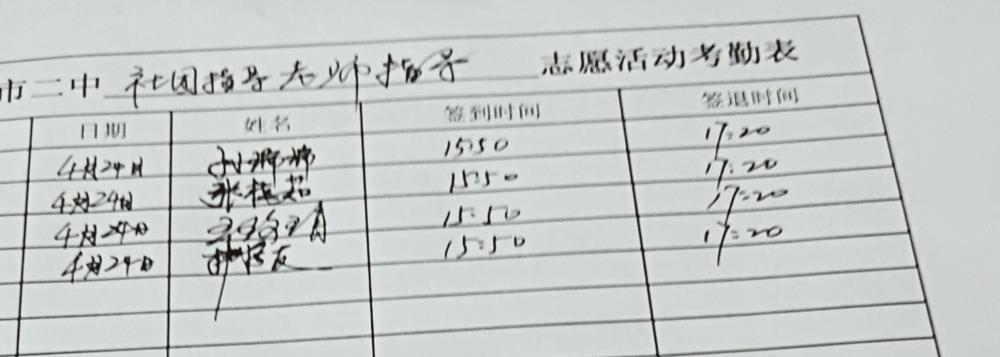 市二中 社团指导老师指导 志愿活动考勤表
日期 姓名 签到时间 签退时间
4月24日 孙娜娜 15:50 17:20
4月24日 张桂超 15:50 17:20
4月24日 15:50 17:20
4月24日 15:50 17:20